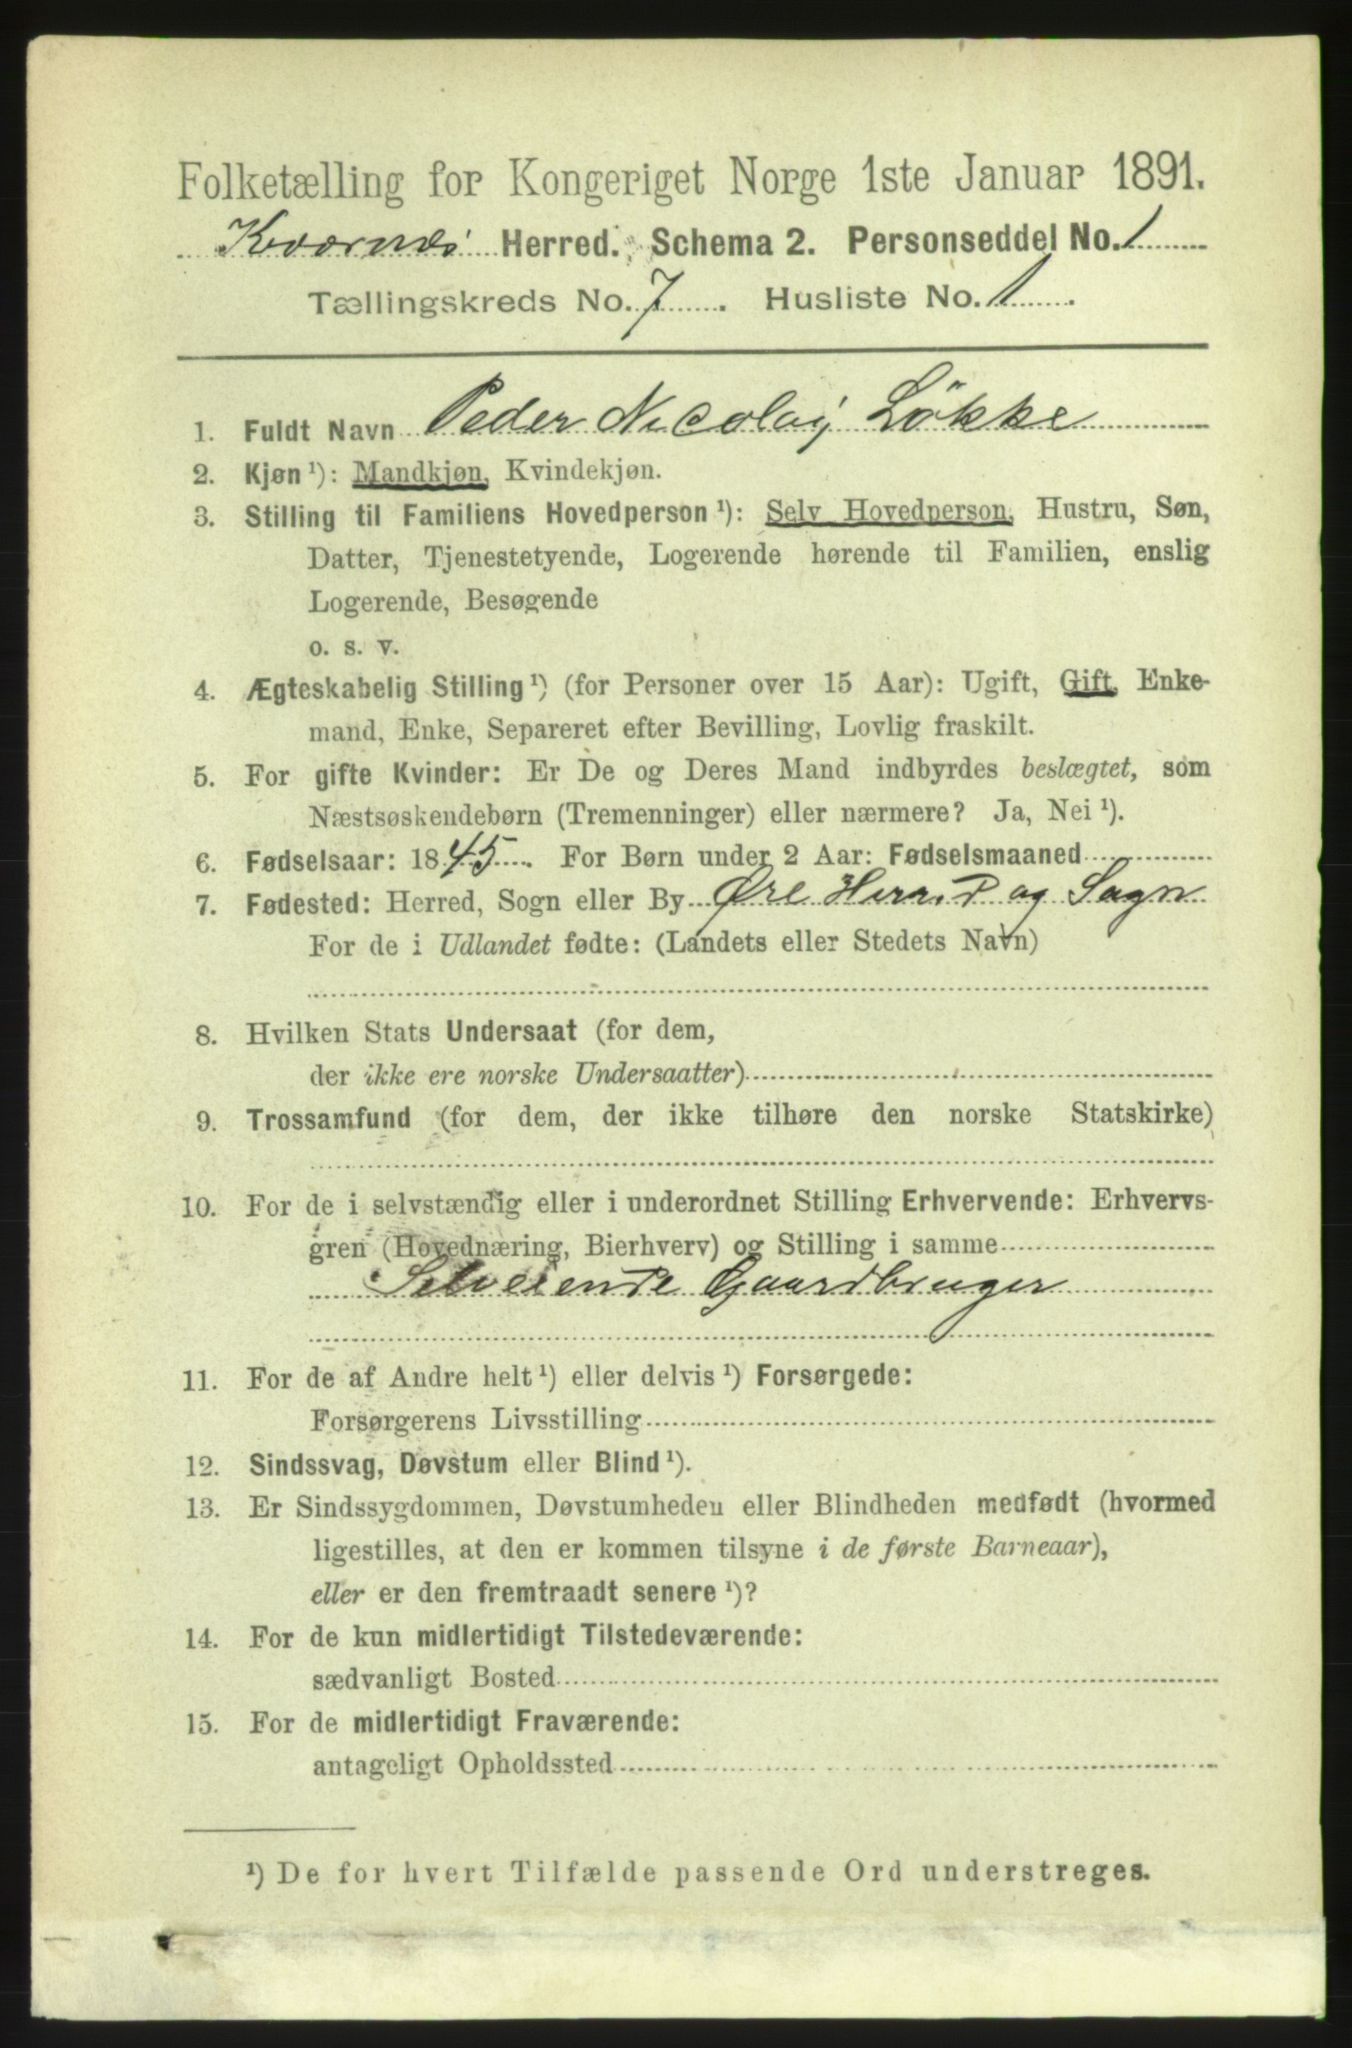 Folketælling for Kongeriget Norge 1ste Januar 1891.
Kværnæs Herred. Schema 2. Personseddel No. 1
Tællingskreds No. 7. Husliste No. 1.
1. Fuldt Navn Peder Nicolaÿ Løkke
2. Kjøn ¹): Mandkjøn, Kvindekjøn.
3. Stilling til Familiens Hovedperson ¹): Selv Hovedperson, Hustru, Søn,
Datter, Tjenestetyende, Logerende hørende til Familien, enslig
Logerende, Besøgende
o. s. v.
4. Ægteskabelig Stilling ¹) (for Personer over 15 Aar): Ugift, Gift, Enke-
mand, Enke, Separeret efter Bevilling, Lovlig fraskilt.
5. For gifte Kvinder: Er De og Deres Mand indbyrdes beslægtet, som
Næstsøskendebørn (Tremenninger) eller nærmere? Ja, Nei ¹).
6. Fødselsaar: 1845. For Børn under 2 Aar: Fødselsmaaned
7. Fødested: Herred, Sogn eller By Øre Herred og Sogn
For de i Udlandet fødte: (Landets eller Stedets Navn)
8. Hvilken Stats Undersaat (for dem,
der ikke ere norske Undersaatter)
9. Trossamfund (for dem, der ikke tilhøre den norske Statskirke)
10. For de i selvstændig eller i underordnet Stilling Erhvervende: Erhvervs-
gren (Hovednæring, Bierhverv) og Stilling i samme
Selveiende Gaardbruger
11. For de af Andre helt ¹) eller delvis ¹) Forsørgede:
Forsørgerens Livsstilling
12. Sindssvag, Døvstum eller Blind ¹).
13. Er Sindssygdommen, Døvstumheden eller Blindheden medfødt (hvormed
ligestilles, at den er kommen tilsyne i de første Barneaar),
eller er den fremtraadt senere ¹)?
14. For de kun midlertidigt Tilstedeværende:
sædvanligt Bosted
15. For de midlertidigt Fraværende:
antageligt Opholdssted
¹) De for hvert Tilfælde passende Ord understreges.